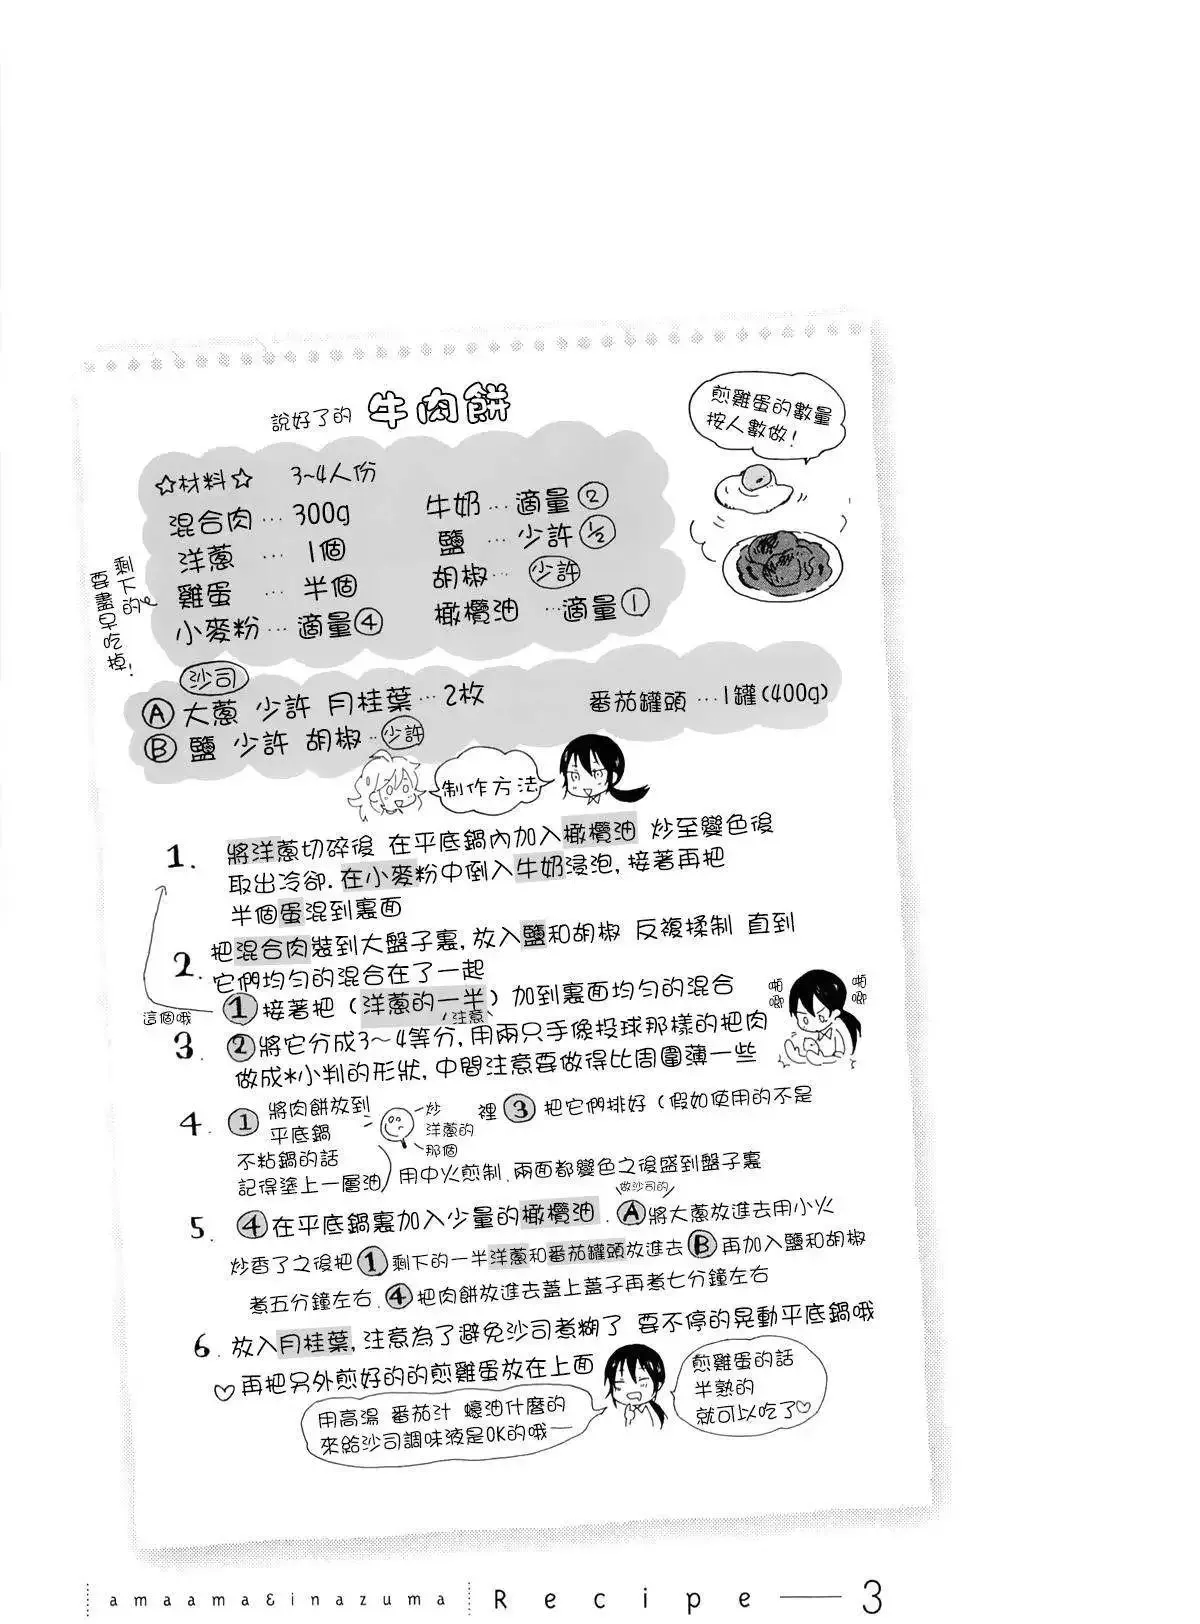 說好了的 牛肉餅
煎雞蛋的數量
按人數做!
☆材料☆ 3~4人份
混合肉…300g
洋蔥 … 1個
雞蛋 … 半個
小麥粉…適量④
牛奶…適量②
鹽 … 少許½
胡椒… 少許
橄欖油 …適量①
剩下的
要盡早吃掉!
沙司
Ⓐ 大蔥 少許 月桂葉…2枚
番茄罐頭 …1罐(400g)
Ⓑ 鹽 少許 胡椒…少許
制作方法
1. 將洋蔥切碎後 在平底鍋內加入橄欖油 炒至變色後
取出冷卻. 在小麥粉中倒入牛奶浸泡, 接著再把
半個蛋混到裏面
2. 把混合肉裝到大盤子裏, 放入鹽和胡椒 反複揉制 直到
它們均勻的混合在了一起
這個哦
① 接著把 (洋蔥的一半) 加到裏面均勻的混合
注意
啪唧
啪唧
3. ②將它分成3~4等分, 用兩只手像投球那樣的把肉
做成*小判的形狀, 中間注意要做得比周圍薄一些
4. ① 將肉餅放到
平底鍋
炒
洋蔥的
那個
裡 ③ 把它們排好 (假如使用的不是
不粘鍋的話
記得塗上一層油) 用中火煎制. 兩面都變色之後盛到盤子裏
做沙司的
5. ④在平底鍋裏加入少量的橄欖油. Ⓐ將大蔥放進去用小火
炒香了之後把 ① 剩下的一半洋蔥和番茄罐頭放進去 Ⓑ 再加入鹽和胡椒
煮五分鐘左右. ④ 把肉餅放進去蓋上蓋子再煮七分鐘左右
6. 放入月桂葉, 注意為了避免沙司煮糊了 要不停的晃動平底鍋哦
♡再把另外煎好的的煎雞蛋放在上面
用高湯 番茄汁 蠔油什麼的
來給沙司調味液是OK的哦—
煎雞蛋的話
半熟的
就可以吃了♡
amaama&inazuma Recipe — 3